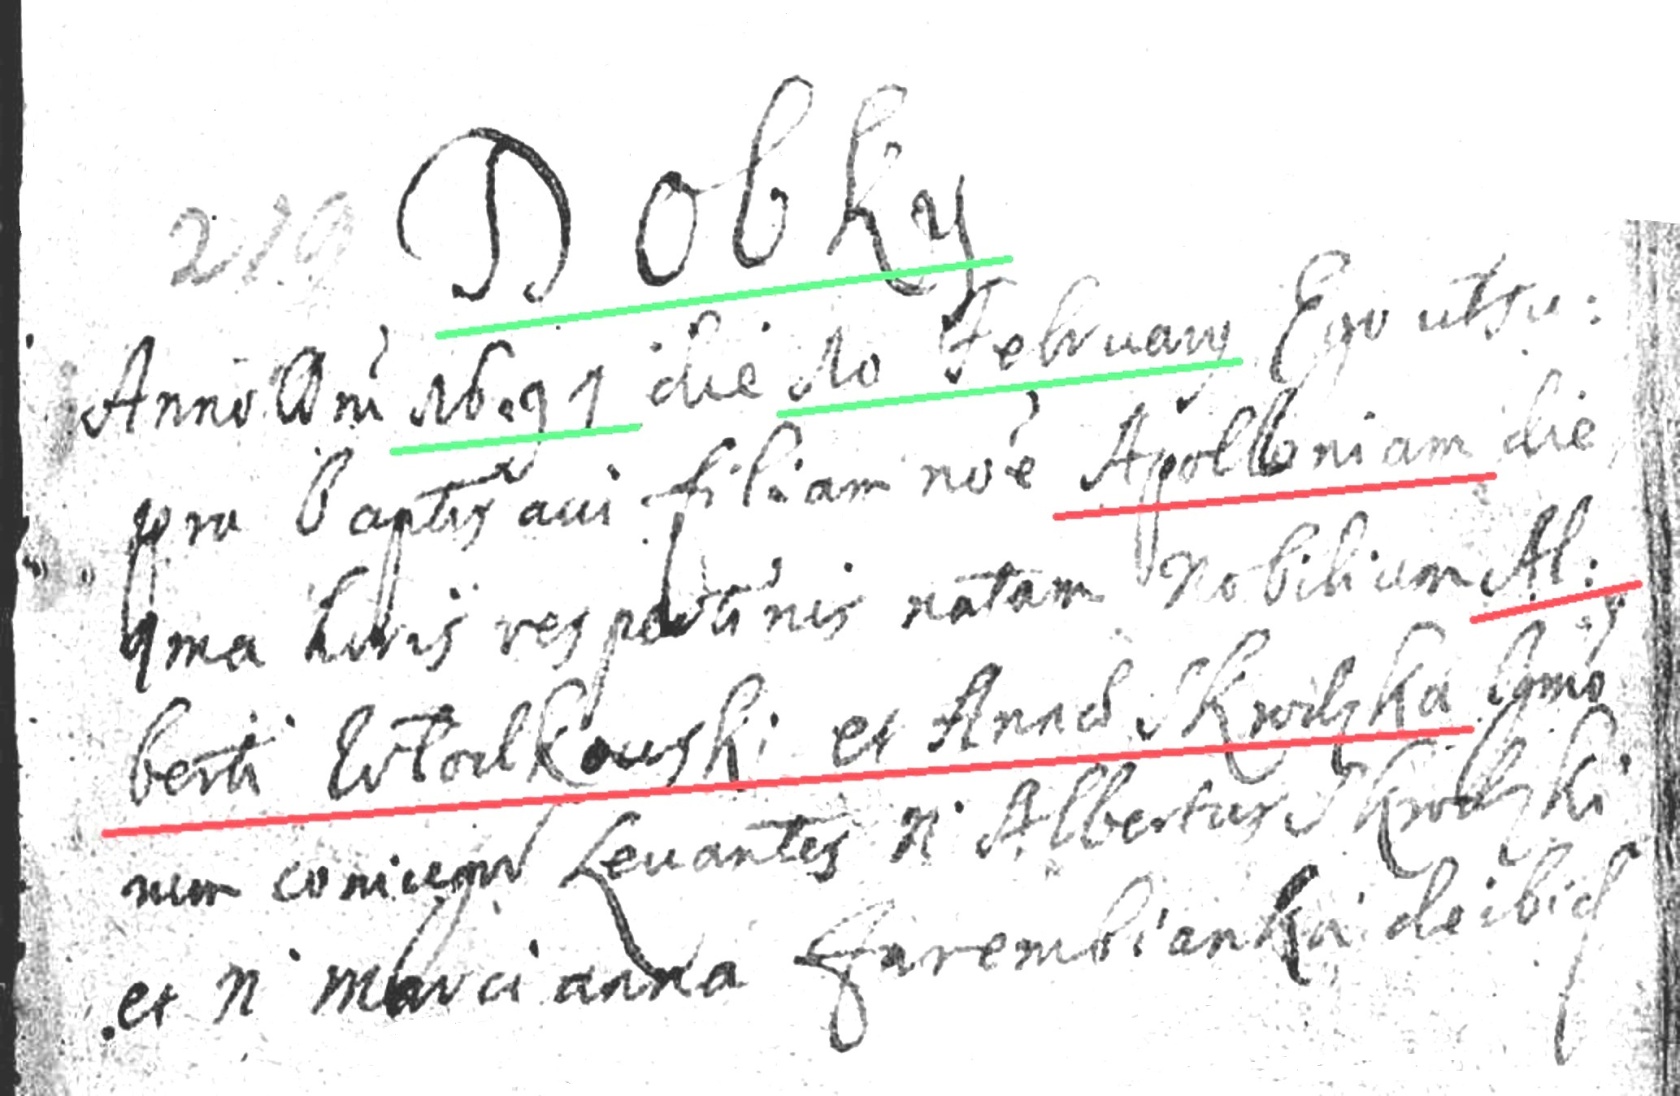 219
Dobky
Anno Dni 1691 die 10 February Ego ut su:
pra baptisavi filiam noe Apolloniam die
1ma horis vespertinis natam Nobilium Al:
berti Wlodkowski et Anna Skrodzka lgmo
num coniugu Levantes N Albertus Skrodzki
et N Marcianna Zarembianka de ibid